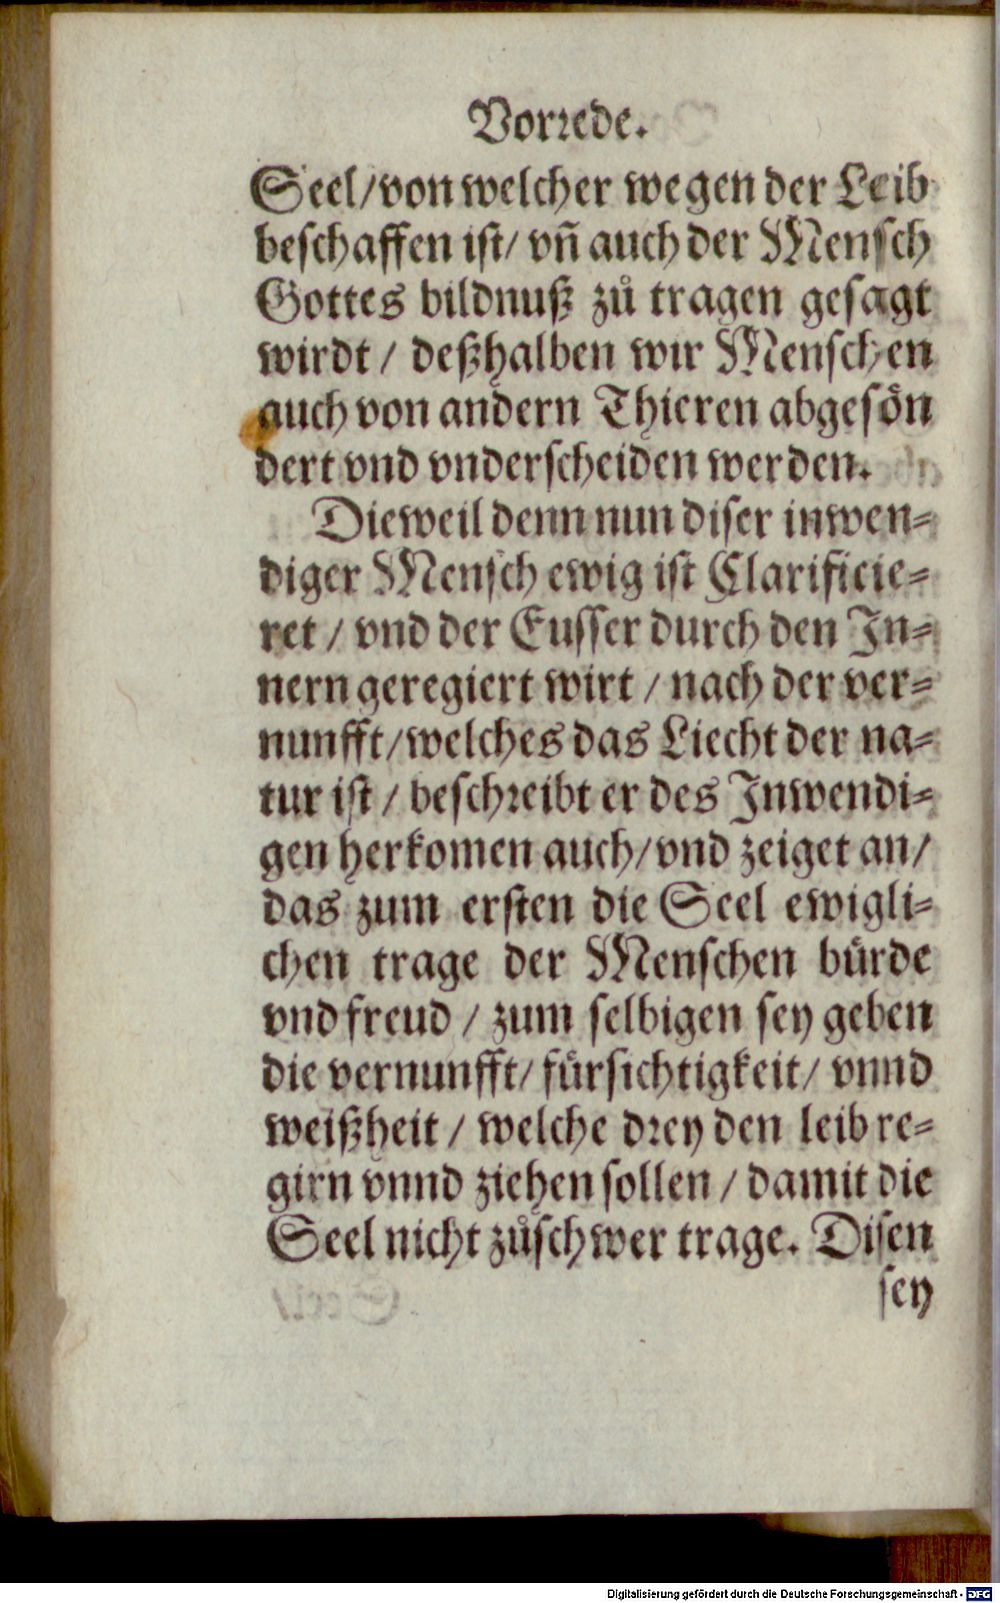 Vorrede.
Seel/von welcher wegen der Leib
beschaffen ist/ vñ auch der Mensch
Gottes bildnuß zů tragen gesagt
wirdt / deßhalben wir Menschen
auch von andern Thieren abgesön
dert vnd vnderscheiden werden.
Dieweil denn nun diser inwen=
diger Mensch ewig ist Clarificie=
ret / vnd der Eusser durch den In=
nern geregiert wirt / nach der ver=
nunfft/welches das Liecht der na=
tur ist / beschreibt er des Inwendi=
gen herkomen auch/vnd zeiget an/
das zum ersten die Seel ewigli=
chen trage der Menschen bürde
vnd freud / zum selbigen sey geben
die vernunfft/ fürsichtigkeit/ vnnd
weißheit / welche drey den leib re=
girn vnnd ziehen sollen / damit die
Seel nicht zůschwer trage. Disen
sey
Digitalisierung gefördert durch die Deutsche Forschungsgemeinschaft - DFG